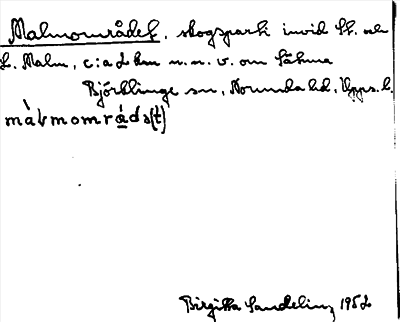 Malmområdet, skogspark invid St. och
L. Malm, c:a 2 km n.n.v. om Sätuna
Björklinge sn, Norunda hd, Upps. l.
màlmområ̀də(t)
Birgitta Sandelin, 1952